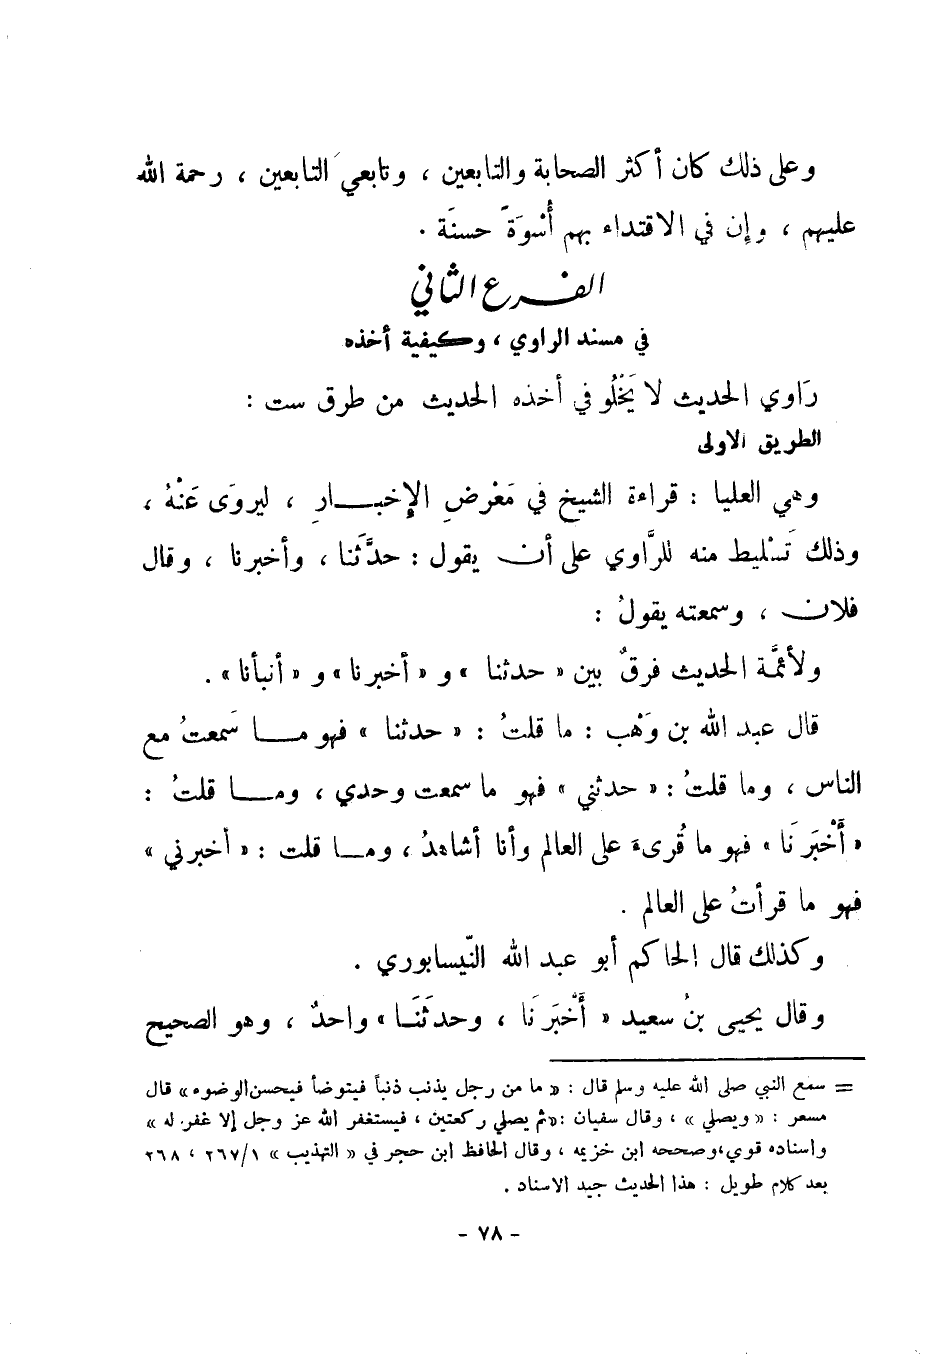 وعلى ذلك كان أكثر الصحابة والتابعين ، وتابعي التابعين ، رحمة الله
عليهم ، وإن في الاقتداء بهم أُسْوَةً حسنَة .
الفـرع الثاني
في مسند الراوي ، وكيفية أخذه
رَاوي الحديث لا يَخْلُو في أخذه الحديث من طرق ست :
الطريق الاولى
وهي العليا : قراءة الشيخ في مَعْرِضِ الإخبـــارِ ، ليروَى عَنْهُ ،
وذلك تَسْليط منه للرَّاوي على أن يقول : حدَّثَنا ، وأخبرنا ، وقال
فلان ، وسمعته يقولُ :
ولأئمَّة الحديث فرقٌ بين « حدثنا » و « أخبرنا » و « أنبأنا » .
قال عبد الله بن وَهْب : ما قلتُ : « حدثنا » فهو مــا سَمعتُ مع
الناس ، وما قلتُ : « حدثني » فهو ما سمعت وحدي ، ومــا قلتُ :
« أَخْبَرَنَا » فهو ما قُرىءَ على العالم وأنا أشاهدُ ، ومـا قلت : « أخبرني »
فهو ما قرأتُ على العالم .
وكذلك قال الحاكم أبو عبد الله النَّيسابوري .
وقال يحيى بنُ سعيد « أَخْبَرَنَا ، وحدثَنَـا » واحدٌ ، وهو الصحيح
= سمع النبي صلى الله عليه وسلم قال : « ما من رجل يذنب ذنباً فيتوضأ فيحسن الوضوء » قال
مسعر : « ويصلي » ، وقال سفيان : «ثم يصلي ركعتين ، فيستغفر الله عز وجل إلا غفر له »
واسناده قوي، وصححه ابن خزيمه ، وقال الحافظ ابن حجر في « التهذيب » ٢٦٧/١ ، ٢٦٨
بعد كلام طويل : هذا الحديث جيد الاسناد .
- ٧٨ -